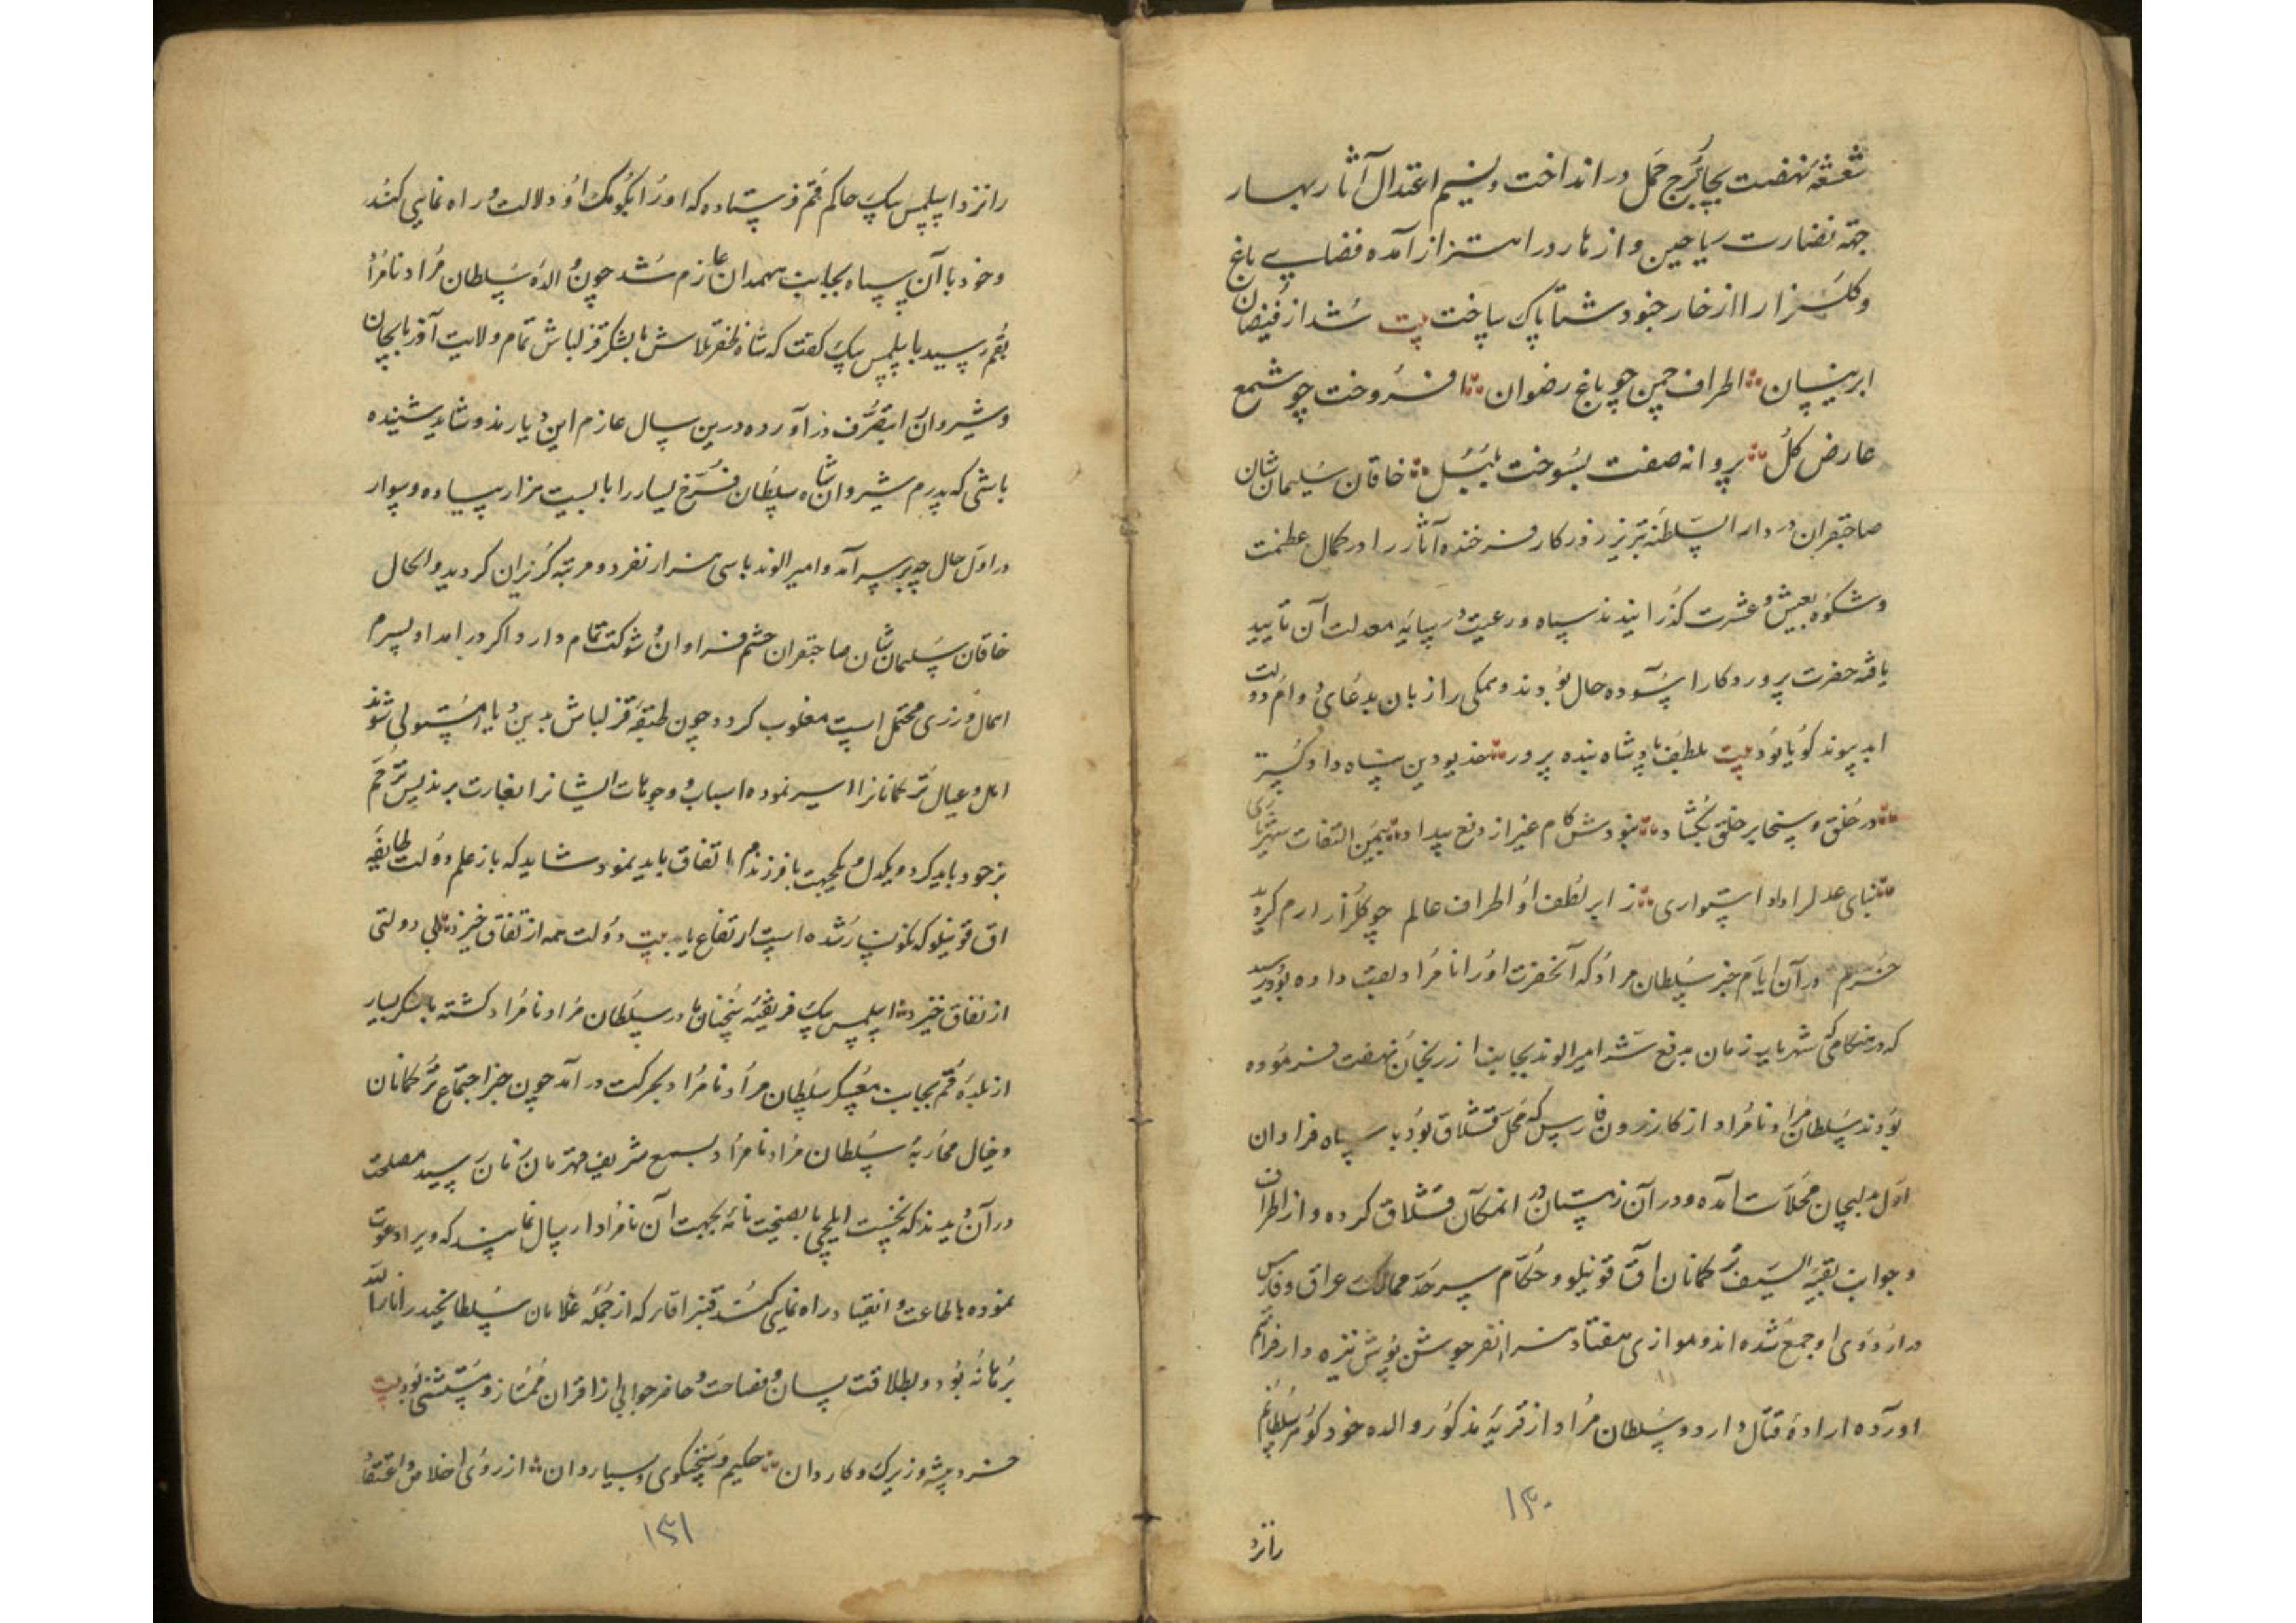 شعشعهٔ نهضت بجانب برج حمل در انداخت و نسیم اعتدال آثار بهار
جهة نضارت ریاحین و ازهار در اهتزاز آمده فضای باغ
و گلزار را از خار جنود شتا پاک ساخت بیت شد از فیضان
ابر نیسان اطراف چمن چو باغ رضوان افروخت چو شمع
عارض گل پروانه صفت بسوخت بلبل خاقان سلیمان شان
صاحبقران در دار السلطنه تبریز روزکار فرخنده آثار را در کمال عظمت
و شکوه بعیش و عشرت کذرانیدند سپاه و رعیت در سایهٔ معدلت آن تایید
یافته حضرت پروردکار آسوده حال بودند و همکی را زبان بدعای دوام دولت
ابد پیوند کویا بود بیت بلطف پادشاه بنده پرور خدیو دین پناه داد کستر
در خلق و سخا بر خلق بکشاد نبودش کام غیر از دفع بیداد بیمن التفات شهریاری
بنای عدل را داد استواری ز ابر لطف او اطراف عالم چو کلزار ارم کردید
خرم در آن ایام خبر سلطان مراد که آنحضرت او را نامراد لقب داده بود رسید
که در هنکامی که شهریار زمان بدفع شر امیر الوند بجانب ارزنجان نهضت فرموده
بودند سلطان مراد نامراد از کازرون فارس که محل قشلاق بود با سپاه فراوان
اول بدلیجان محلات آمده و در آن زمستان در انمکان قشلاق کرده و از اطراف
و جوانب بقیة السیف ترکمانان اق قوینلو و حکام سرحد ممالک عراق و فارس
در اردوی او جمع شده اند و موازی هفتاد هزار نفر جوشن پوش نیزه دار فراهم
اورده ارادهٔ قتال دارد و سلطان مراد از قریهٔ مذکور والده خود کوهر سلطان خانم
۱۳۰
را نزد
را نزد اسلمس بیک حاکم قم فرستاده که او را بکومک او دلالت و راه نمایی کند
و خود با آن سپاه بجانب همدان عازم شد چون والدهٔ سلطان مراد نامراد
بقم رسید با اسلمس بیک کفت که شاه ظفر تلاش با لشکر قزلباش تمام ولایت آذربایجان
و شیروان را بتصرف در آورده درین سال عازم این دیارند و شاید شنیده
باشی که پدرم شیروان شاه سلطان فرخ یسار را با بیست هزار پیاده و سوار
در اول حال چه بر سر آمد و امیر الوند با سی هزار نفر دو مرتبه کریزان کردید و الحال
خاقان سلیمان شان صاحبقران حشم فراوان و شوکت تمام دارد اکر در امداد پسرم
اهمال ورزی محتمل است مغلوب کردد و چون طبقهٔ قزلباش بدین دیار مستولی شوند
اهل و عیال ترکمانان را اسیر نموده اسباب و جهات ایشان را بغارت برند پس ترحم
بر خود باید کرد و یکدل و یکجهت با فرزندم اتفاق باید نمود شاید که باز علم دولت طایفهٔ
اق قوینلو که نکونسار شده است ارتفاع یابد بیت دولت همه از اتفاق خیزد بی دولتی
از نفاق خیزد اسلمس بیک فریفتهٔ سخنان مادر سلطان مراد نامراد کشته با لشکر بسیار
از بلدهٔ قم بجانب معسکر سلطان مراد نامراد بحرکت در آمد چون خبر اجتماع ترکمانان
و خیال محاربهٔ سلطان مراد نامراد بسمع شریف قهرمان زمان رسید مصلحت
در آن دیدند که نخست ایلچی با نصیحت نامهٔ بجهت آن نامراد ارسال نمایند که ویرا دعوت
نموده باطاعت و انقیاد راه نمایی کند قنبر اقا را که از جمله غلامان سلطان حیدر انار الله
برهانه بود و بطلاقت لسان و فصاحت و حاضر جوابی از اقران ممتاز و مستثنی بود بیت
خرد پیشه و زیرک و کاردان حکیم و سخنکوی و بسیار دان از روی اخلاص و اعتقاد
۱۳۱